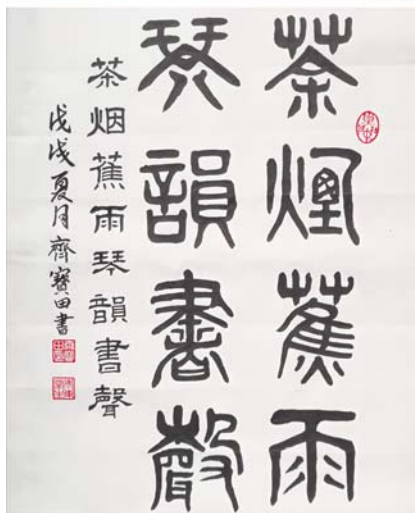 茶煙蕉雨
琴韻書聲
茶烟蕉雨琴韻書聲
戊戌夏月齊寶田書